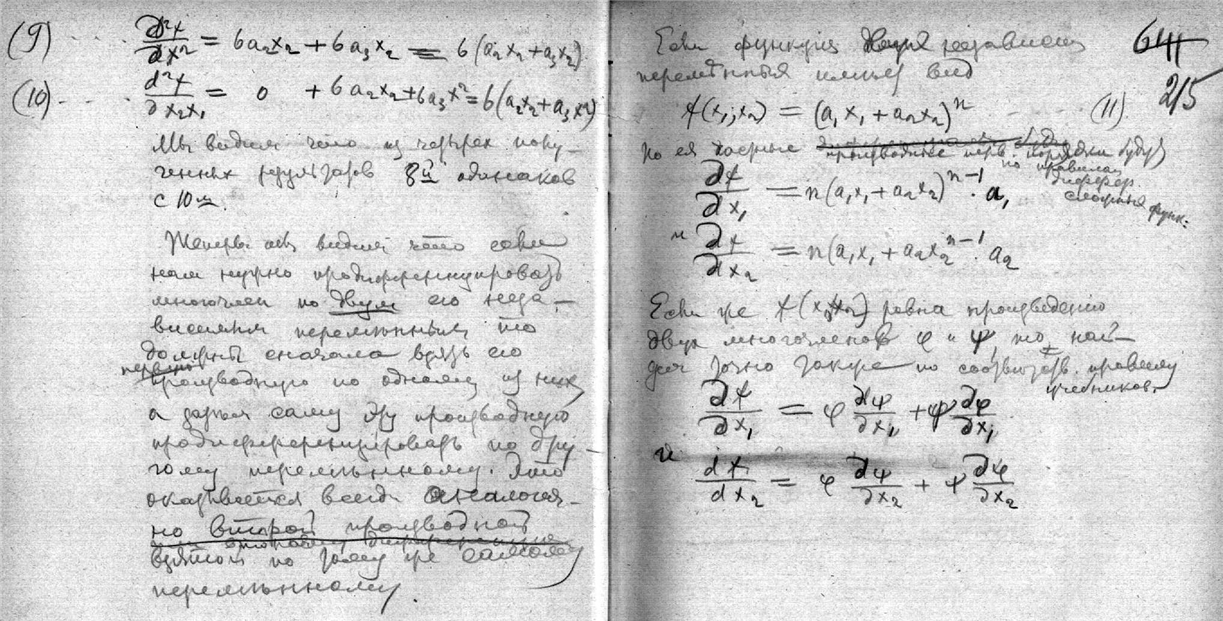 (9) ∂²f/∂x² = 6a₂x₂ + 6a₃x₂ = 6(a₂x₂ + a₃x₂)
(10) d²f/∂x₂x₁ = 0 + 6a₂x₂ + 6a₃x² = 6(a₂x₂ + a₃x²)
Мы видим что из четырех полу-
ченных результатов 8й одинаков
с 10м.
Теперь мы видим что если
нам нужно продифференцировать
многочлен по двум его неза-
висимым переменным то
должны сначала взять его
первую
производную по одному из них,
а затем саму эту производную
продифференцировать по дру-
гому переменному. Это
оказывается всегда аналогич-
но второй производной
взятой по тому же самому
переменному.
Если функция двух независим
переменных имеет вид
6111
215
f(x₁; x₂) = (a₁x₁ + a₂x₂)ⁿ (11)
то ея частные производные перв. порядка будут
по правилам
диффер.
сложных функ.
∂f/∂x₁ = n(a₁x₁ + a₂x₂)ⁿ⁻¹ · a₁
и ∂f/∂x₂ = n(a₁x₁ + a₂x₂ⁿ⁻¹ · a₂
Если же f(x₁x₂) равна произведению
двух многочленов φ и ψ, то най-
дем точно также по соответств. правилу
учебников.
∂f/∂x₁ = φ ∂ψ/∂x₁ + ψ ∂φ/∂x₁
и df/dx₂ = φ ∂ψ/∂x₂ + ψ ∂φ/∂x₂